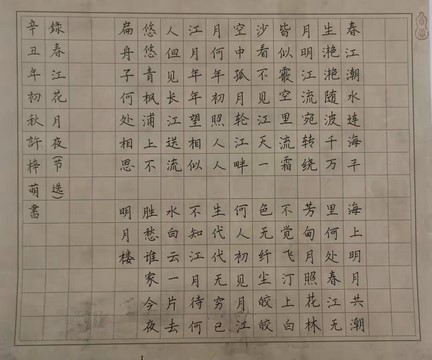 春江潮水连海平 海上明月共潮
生滟滟随波千万 里何处春江无
月明江流宛转绕 芳甸月照花林
皆似霰空里流霜 不觉飞汀上白
沙看不见江天一 色无纤尘皎皎
空中孤月轮江畔 何人初见月江
月何年初照人人 生代代无穷已
江月年年望相似 不知江月待何
人但见长江送流 水白云一片去
悠悠青枫浦上不 胜愁谁家今夜
扁舟子何处相思 明月楼
錄春江花月夜(节选)
辛丑年初秋許梓萌書